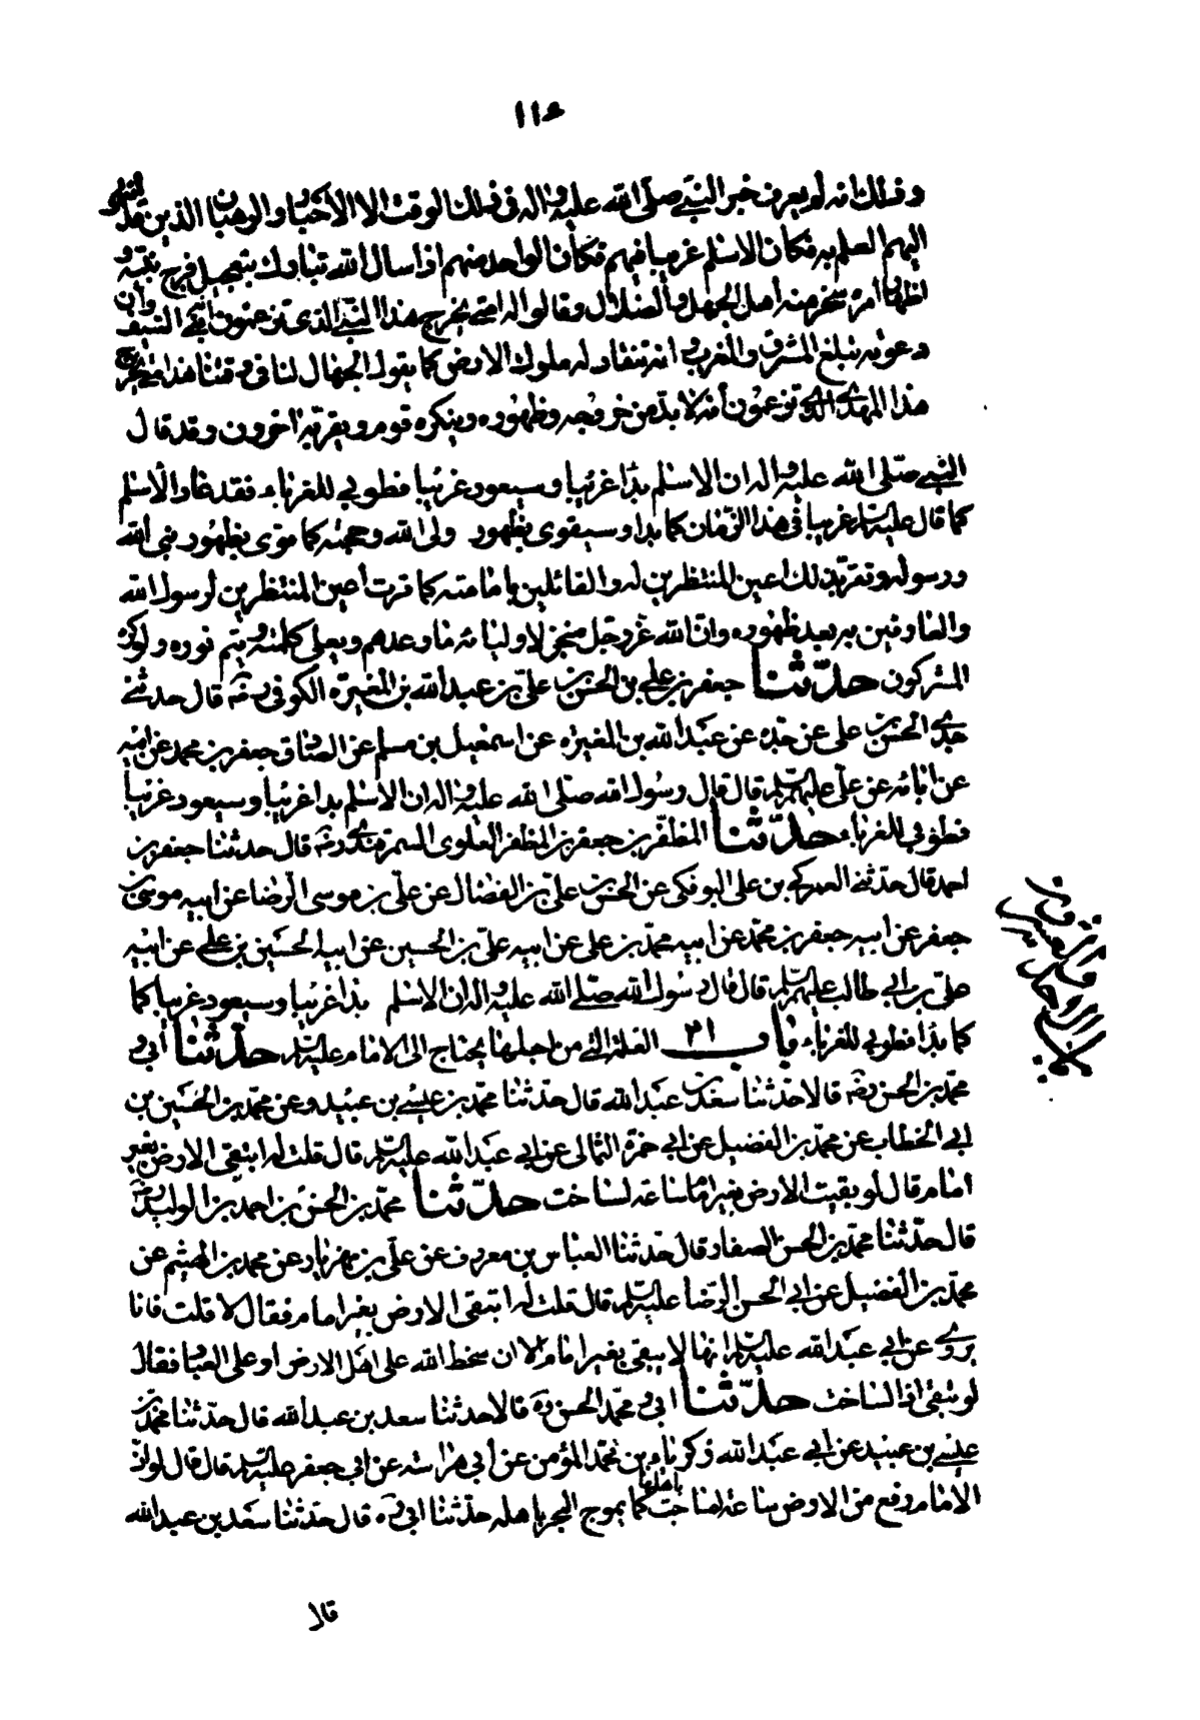 ١١٤
وذلك انه لم يعرف خبر النبي صلى الله عليه واله في ذلك الوقت الا الاحبار والرهبان الذين قد انتهى
اليهم العلم به فكان الاسلم غريبا فيهم فكان الواحد منهم اذا سال الله تبارك بتعجيل فرج نبيه و
اظهار امره سخر منه اهل الجهل والضلال وقالوا له متى يخرج هذا النبي الذي تزعمون انه نبي السيف وان
دعوته تبلغ المشرق والمغرب انه تنقاد له ملوك الارض كما يقول الجهال لنا في وقتنا هذا متى يخرج
هذا المهدي الذي تزعمون انه لا بد من خروجه وظهوره وينكره قوم ويقر به اخرون وقد قال
النبي صلى الله عليه واله ان الاسلم بدا غريبا وسيعود غريبا فطوبى للغرباء فقد عاد الاسلم
كما قال عليه السلم غريبا في هذا الزمان كما بدا وسيقوى بظهور ولي الله وحجته كما قوى بظهور نبي الله
ورسوله وتقر بذلك اعين المنتظرين له والقائلين بامامته كما قرت اعين المنتظرين لرسول الله
والعارفين به بعد ظهوره وان الله عز وجل منجز لاوليائه ما وعدهم ويعلي كلمته ويتم نوره ولو كره
المشركون حدثنا جعفر بن علي بن الحسن بن علي بن عبد الله بن المغيرة الكوفي رضه قال حدثني
جدي الحسن بن علي عن جده عن عبد الله بن المغيرة عن اسمعيل بن مسلم عن الصادق جعفر بن محمد عن ابيه
عن ابائه عن علي عليهم السلم قال قال رسول الله صلى الله عليه واله ان الاسلم بدا غريبا وسيعود غريبا
فطوبى للغرباء حدثنا المظفر بن جعفر بن المظفر العلوي السمرقندي رضه قال حدثنا جعفر بن
احمد قال حدثني العمركي بن علي البوفكي عن الحسن بن علي بن الفضال عن علي بن موسى الرضا عن ابيه موسى بن
جعفر عن ابيه جعفر بن محمد عن ابيه محمد بن علي عن ابيه علي بن الحسين عن ابيه الحسين بن علي عن ابيه
علي بن ابي طالب عليهم السلم قال قال رسول الله صلى الله عليه واله ان الاسلم بدا غريبا وسيعود غريبا كما
كما بدا فطوبى للغرباء باب ٢١ العلة التي من اجلها يحتاج الى الامام عليه السلم حدثنا ابي و
محمد بن الحسن رضه قالا حدثنا سعد بن عبد الله قال حدثنا محمد بن عيسى بن عبيد وعن محمد بن الحسين بن
ابي الخطاب عن محمد بن الفضيل عن ابي حمزة الثمالي عن ابي عبد الله عليه السلم قال قلت له ابتقى الارض بغير
امام قال لو بقيت الارض بغير امام ساعة لساخت حدثنا محمد بن الحسن بن احمد بن الوليد رضه
قال حدثنا محمد بن الحسن الصفار قال حدثنا العباس بن معروف عن علي بن مهزيار عن محمد بن الهيثم عن
محمد بن الفضيل عن ابي الحسن الرضا عليه السلم قال قلت له ابتقى الارض بغير امام فقال لا قلت فانا
نروي عن ابي عبد الله عليه السلم انها لا يبقى بغير امام الا ان سخط الله على اهل الارض او على العباد فقال
لو تبقى اذا لساخت حدثنا ابي و محمد الحسن ره قالا حدثنا سعد بن عبد الله قال حدثنا محمد بن
عيسى بن عبيد عن ابي عبد الله زكرياء بن محمد المؤمن عن ابي هراسة عن ابي جعفر عليه السلم قال قال لو ان
الامام رفع من الارض ساعة لماجت باهلها كما يموج البحر باهله حدثنا ابي ره قال حدثنا سعد بن عبد الله
قالا